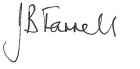 JB Farrell